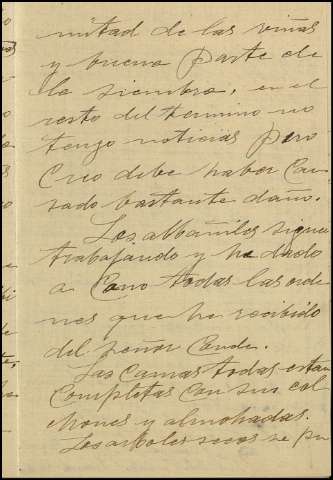 mitad de las viñas
y buena parte de
la siembra, en el
resto del termino no
tengo noticias pero
Creo debe haber Cau-
sado bastante daño.
Los albañiles sigue
trabajando y he dado
a Cano todas las orde
nes que he recibido
del señor Conde.
Las Camas todas estan
Completas con sus col
chones y almohadas.
Los arboles secos se pu